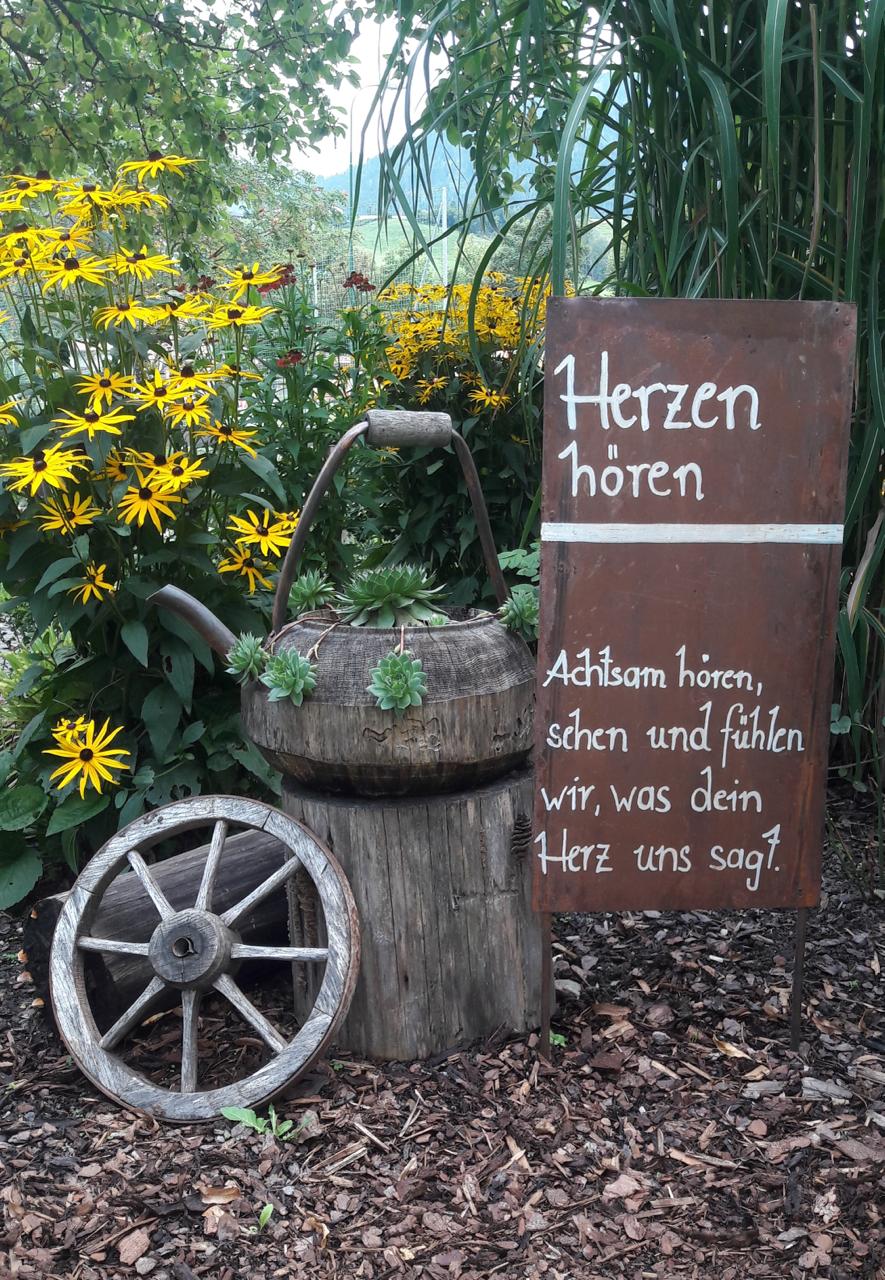 Herzen
hören
Achtsam hören,
sehen und fühlen
wir, was dein
Herz uns sagt.